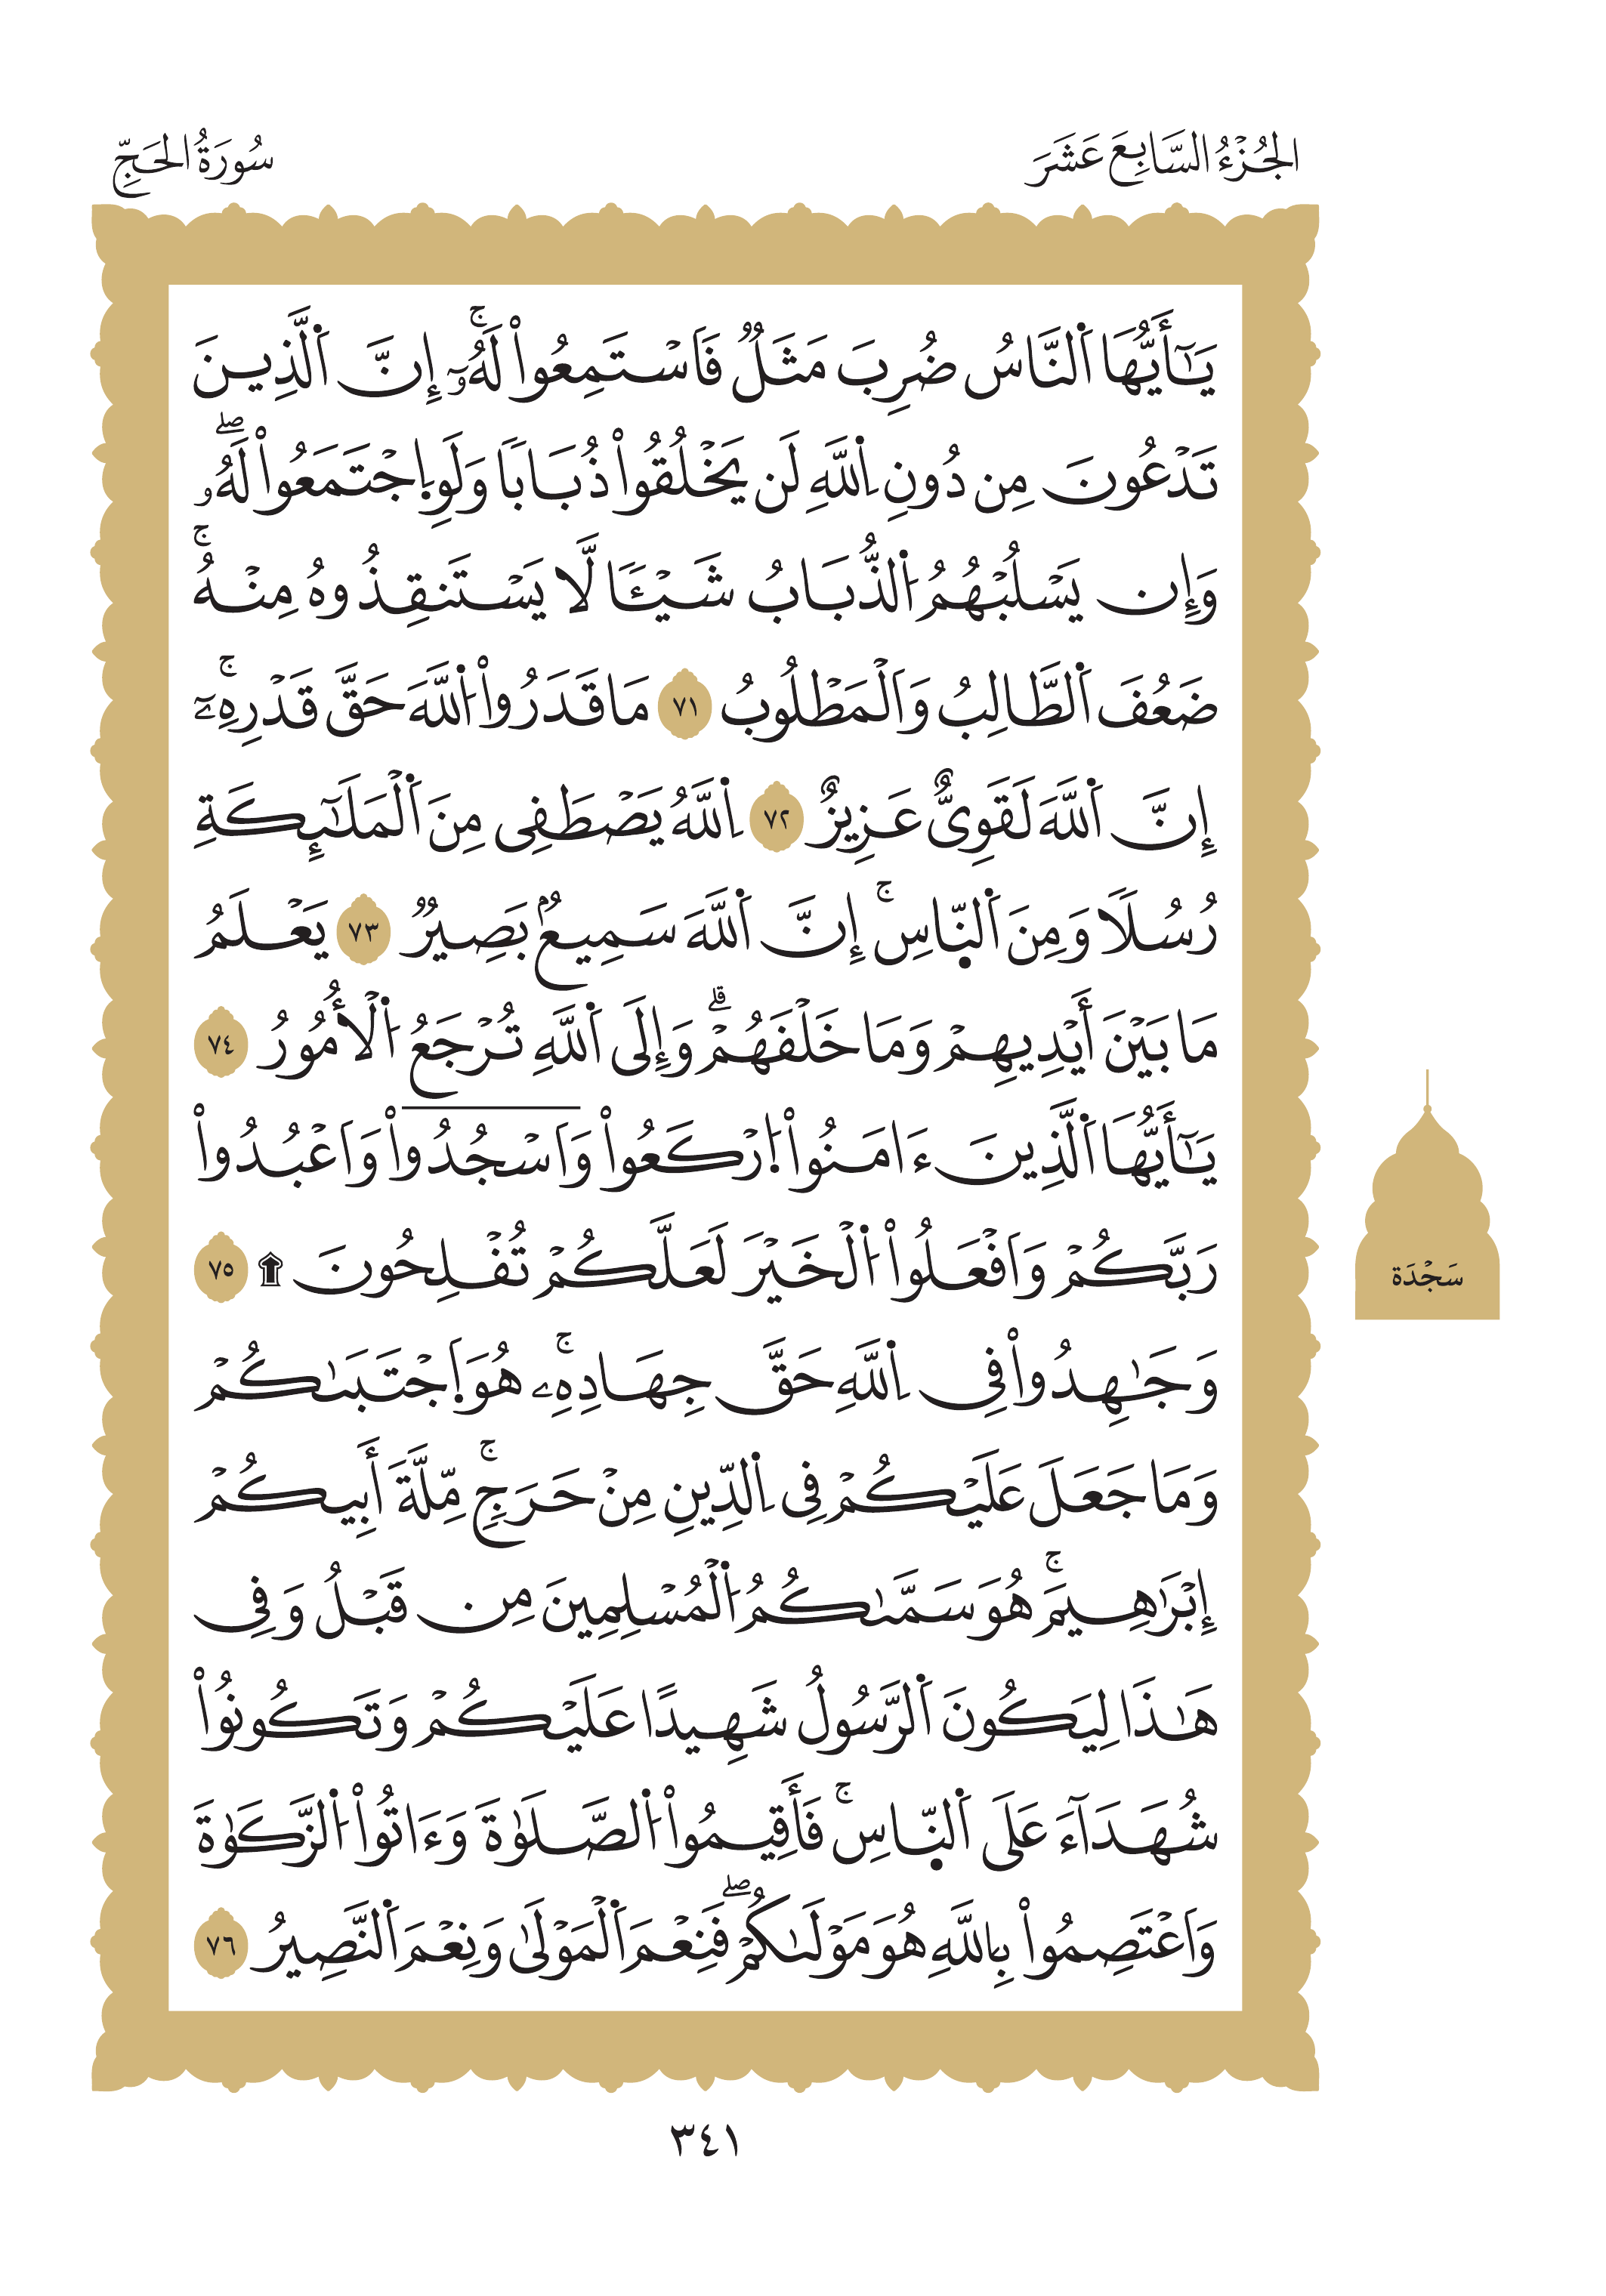 الجُزْءُ السَّابِعَ عَشَرَ
سُورَةُ الحَجِّ
يَـٰٓأَيُّهَا اَ۬لنَّاسُ ضُرِبَ مَثَلٞ فَاَسْتَمِعُواْ لَهُۥٓۚ إِنَّ اَ۬لَّذِينَ
تَدْعُونَ مِن دُونِ اِ۬للَّهِ لَن يَخْلُقُواْ ذُبَابٗا وَلَوِ اِ۪جْتَمَعُواْ لَهُۥۖ
وَإِن يَسْلُبْهُمُ اُ۬لذُّبَابُ شَيْـٔٗا لَّا يَسْتَنقِذُوهُ مِنْهُۚ
ضَعُفَ اَ۬لطَّالِبُ وَاَلْمَطْلُوبُ ٧١ مَا قَدَرُواْ اُ۬للَّهَ حَقَّ قَدْرِهِۦٓۚ
إِنَّ اَ۬للَّهَ لَقَوِيٌّ عَزِيزٌ ٧٢ اِ۬للَّهُ يَصْطَفِي مِنَ اَ۬لْمَلَـٰٓئِكَةِ
رُسُلٗا وَمِنَ اَ۬لنّ۪اسِۚ إِنَّ اَ۬للَّهَ سَمِيعُۢ بَصِيرٞ ٧٣ يَعْلَمُ
مَا بَيْنَ أَيْدِيهِمْ وَمَا خَلْفَهُمْۗ وَإِلَى اَ۬للَّهِ تُرْجَعُ اُ۬لْأُمُورُ ٧٤
يَـٰٓأَيُّهَا اَ۬لَّذِينَ ءَامَنُواْ اُ۪رْكَعُواْ وَاَسْجُدُواْ وَاَعْبُدُواْ
رَبَّكُمْ وَاَفْعَلُواْ اُ۬لْخَيْرَ لَعَلَّكُمْ تُفْلِحُونَ ۩ ٧٥
وَجَـٰهِدُواْ فِي اِ۬للَّهِ حَقَّ جِهَادِهِۦۚ هُوَ اَ۪جْتَبَىٰكُمْ
وَمَا جَعَلَ عَلَيْكُمْ فِي اِ۬لدِّينِ مِنْ حَرَجٖۚ مِّلَّةَ أَبِيكُمْ
إِبْرَٰهِيمَۚ هُوَ سَمَّىٰكُمُ اُ۬لْمُسْلِمِينَ مِن قَبْلُ وَفِي
هَـٰذَا لِيَكُونَ اَ۬لرَّسُولُ شَهِيدًا عَلَيْكُمْ وَتَكُونُواْ
شُهَدَآءَ عَلَى اَ۬لنّ۪اسِۚ فَأَقِيمُواْ اُ۬لصَّلَوٰةَ وَءَاتُواْ اُ۬لزَّكَوٰةَ
وَاَعْتَصِمُواْ بِاللَّهِ هُوَ مَوْلَىٰكُمْۖ فَنِعْمَ اَ۬لْمَوْلَىٰ وَنِعْمَ اَ۬لنَّصِيرُ ٧٦
سَجْدَة
٣٤١